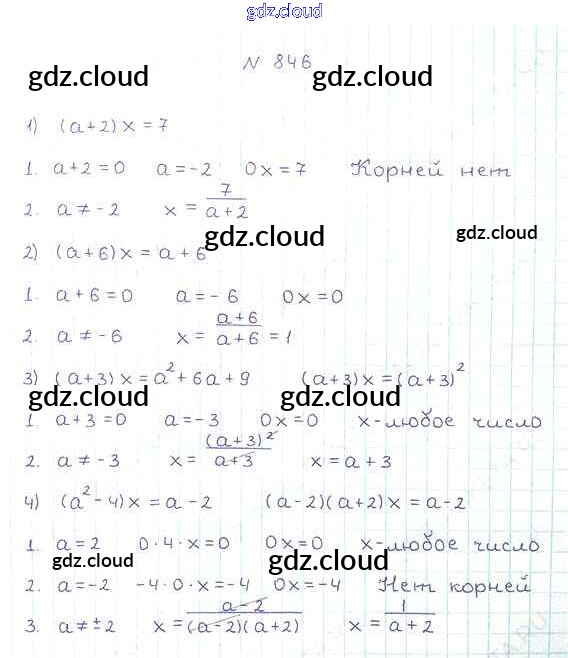 gdz.cloud
N 846
gdz.cloud gdz.cloud
1) (a+2)x=7
1. a+2=0 a=-2 0x=7 Корней нет
2. a≠-2 x= 7/(a+2)
gdz.cloud gdz.cloud
2) (a+6)x=a+6
1. a+6=0 a=-6 0x=0
2. a≠-6 x= (a+6)/(a+6) =1
3) (a+3)x=a²+6a+9 (a+3)x=(a+3)²
gdz.cloud gdz.cloud
1. a+3=0 a=-3 0x=0 x-любое число
2. a≠-3 x= (a+3)²/(a+3) x=a+3
4) (a²-4)x=a-2 (a-2)(a+2)x=a-2
1. a=2 0·4·x=0 0x=0 x-любое число
gdz.cloud gdz.cloud
2. a=-2 -4·0·x=-4 0x=-4 Нет корней
3. a≠±2 x= (a-2)/((a-2)(a+2)) x= 1/(a+2)